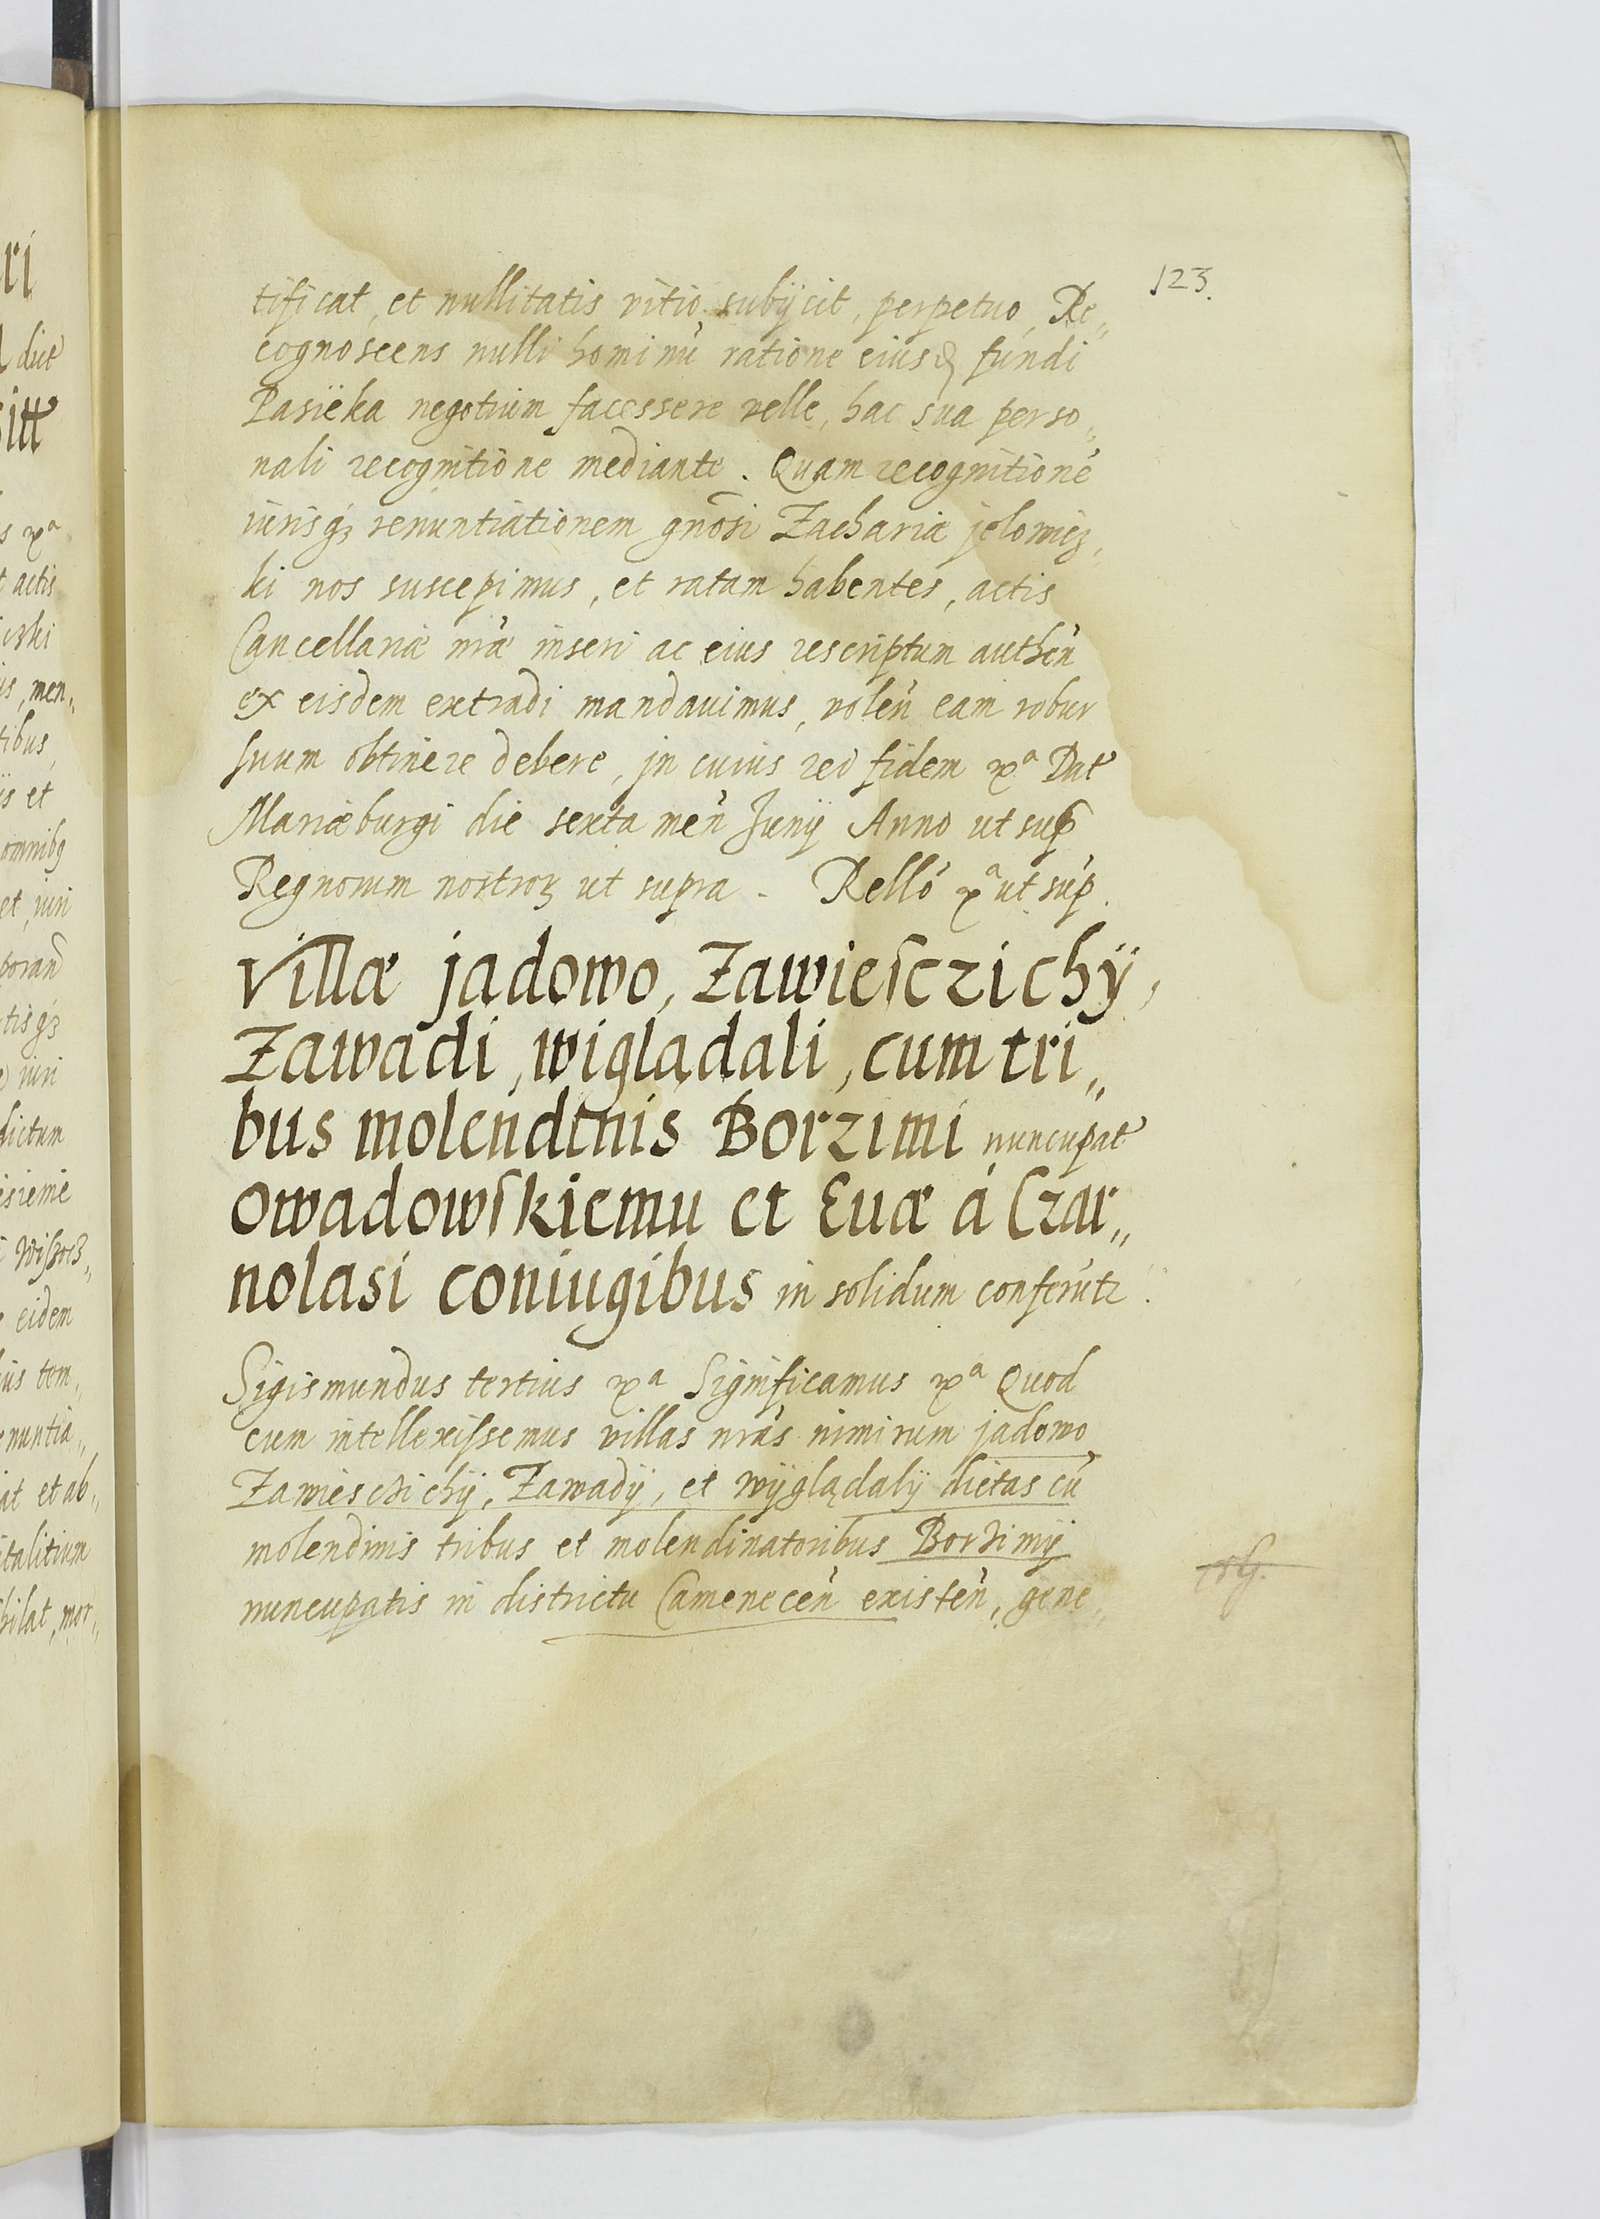 123.
tificat, et nullitatis vitio subijcit, perpetuo, Re„
cognoscens nulli hominũ ratione eiusđ fundi
Pasieka negotium facessere velle, hac sua perso„
nali recognitione mediante. Quam recognitionē
iurisq́ꝫ renuntiationem gnosi Zachariæ jelowicz„
ki nos suscepimus, et ratam habentes, actis
Cancellariæ nrã inseri ac eius rescriptum autheñ
ex eisdem extradi mandauimus, voleñ eam robur
suum obtinere debere, jn cuius rei fidem xª Dat
Mariæburgi die sexta meñ Junij Anno ut sup
Regnorum nostroꝝ ut supra - Relló xª ut sup.
Villæ jadowo, Zawiesczichÿ,
Zawadi, wiglądali, cum tri„
bus molendinis Borzimi nuncupat
Owadowskiemu et Euæ á Czar„
nolasi coniugibus in solidum conferutz.
Sigismundus tertius xª Significamus xª Quod
cum intellexissemus villas nrãs nimirum jadowo
Zawieschichÿ, Zawadÿ, et wÿglądalÿ dictas cũ
molendinis tribus et molendinatoribus Borzimÿ
nuncupatis in districtu Cameneceñ existeñ, gene„